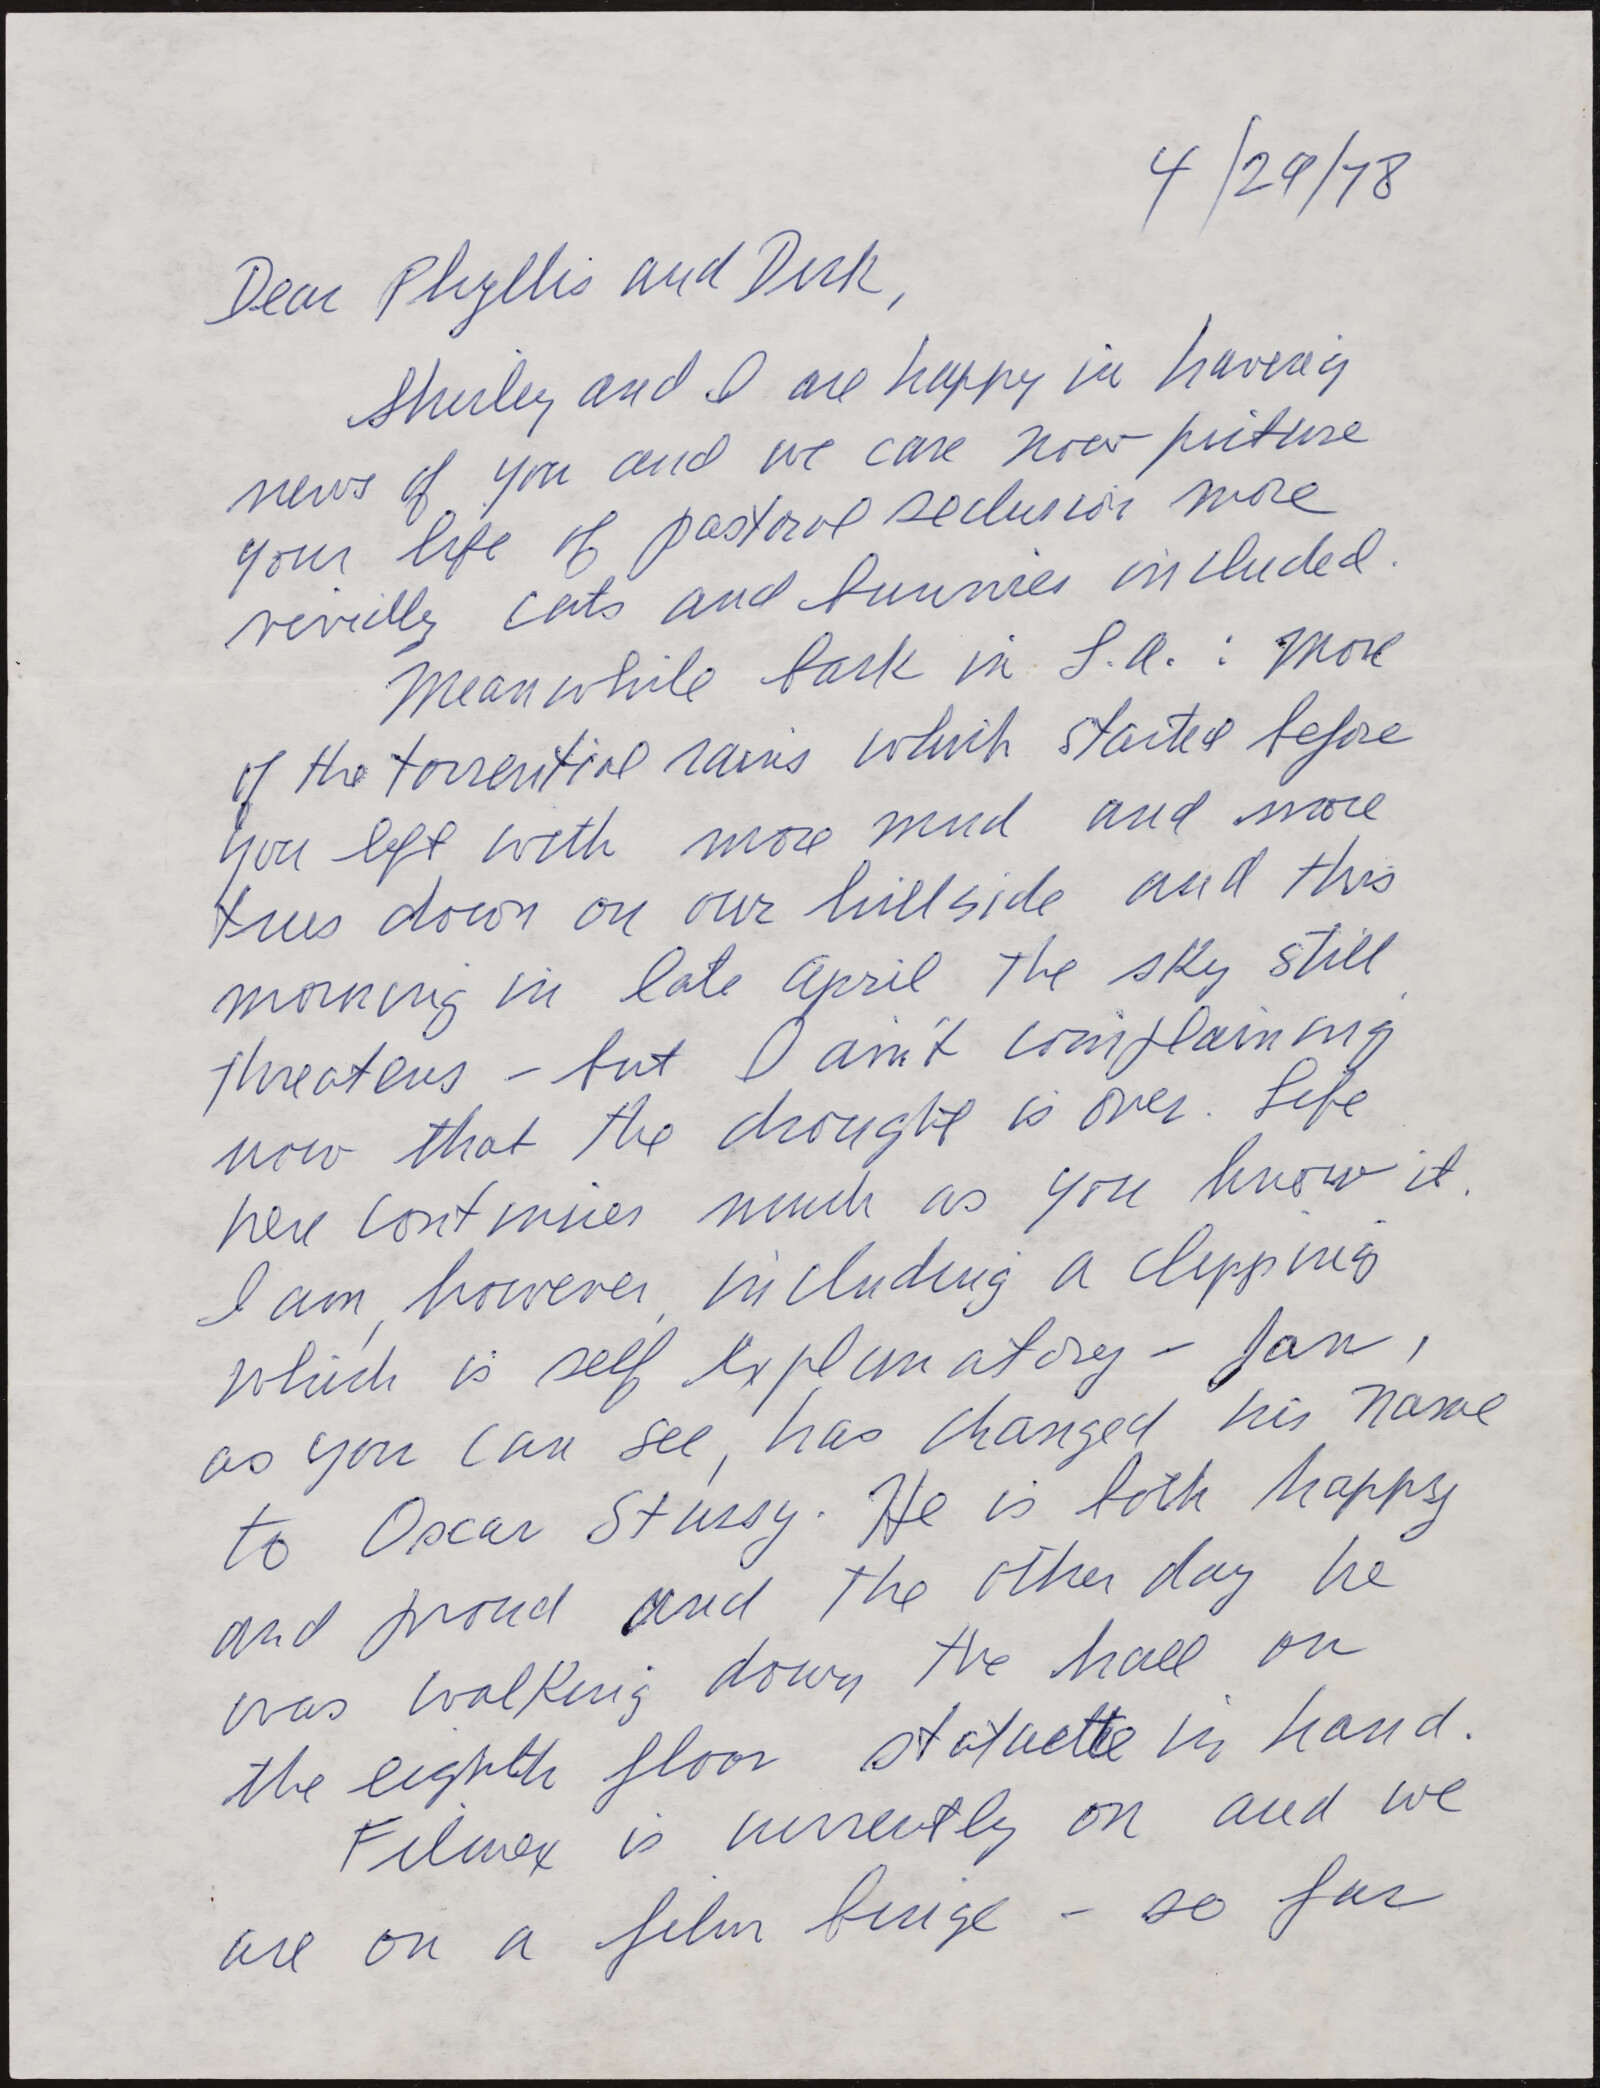 4/29/78
Dear Phyllis and Dick,
Shirley and I are happy in having
news of you and we can now picture
your life of pastoral seclusion more
vividly cats and bunnies included.
Meanwhile back in L.A. : More
of the torrential rains which started before
you left with more mud and more
trees down on our hillside and this
morning in late April the sky still
threatens – but I ain't complaining
now that the drought is over. Life
here continues much as you know it.
I am, however, including a clipping
which is self explanatory – Jan,
as you can see, has changed his name
to Oscar Stussy. He is both happy
and proud and the other day he
was walking down the hall on
the eighth floor statuette in hand.
Filmex is currently on and we
are on a film binge – so far